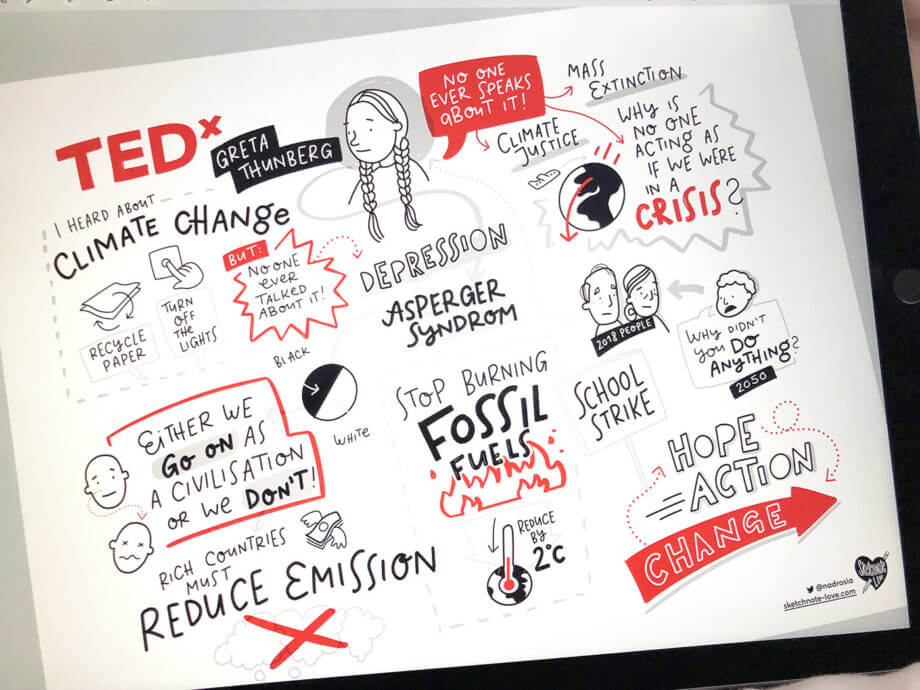 TEDx
GRETA
THUNBERG
NO ONE
EVER SPEAKS
aBOUT IT!
MASS
EXTINCTION
CLIMATE
JUSTICE
WHY IS
NO ONE
ACTING AS
IF WE WERE
IN A
CRISIS?
I HEARD ABOUT
CLIMATE CHANGe
RECYCLE
PAPER
TURN
OFF
THE
LIGHTS
BUT:
NO ONE
eveR
TALKED
ABOUT IT!
DEPRESSION
ASPERGER
SYNDROM
2018 PEOPLE
WHY DIDN'T
YOU DO
ANYTHING?
2050
BLACK
WHITE
EITHER WE
GO ON AS
A CIVILISATION
OR WE DON'T!
STOP BURNING
FOSSIL
FUELS
REDUCE
BY
2°C
SCHOOL
STRIKE
HOPE
=ACTION
CHANGE
RICH COUNTRIES
MUST
REDUCE EMISSION
@nadrosia
sketchnote-love.com
SKETCHNOTE
LOVE